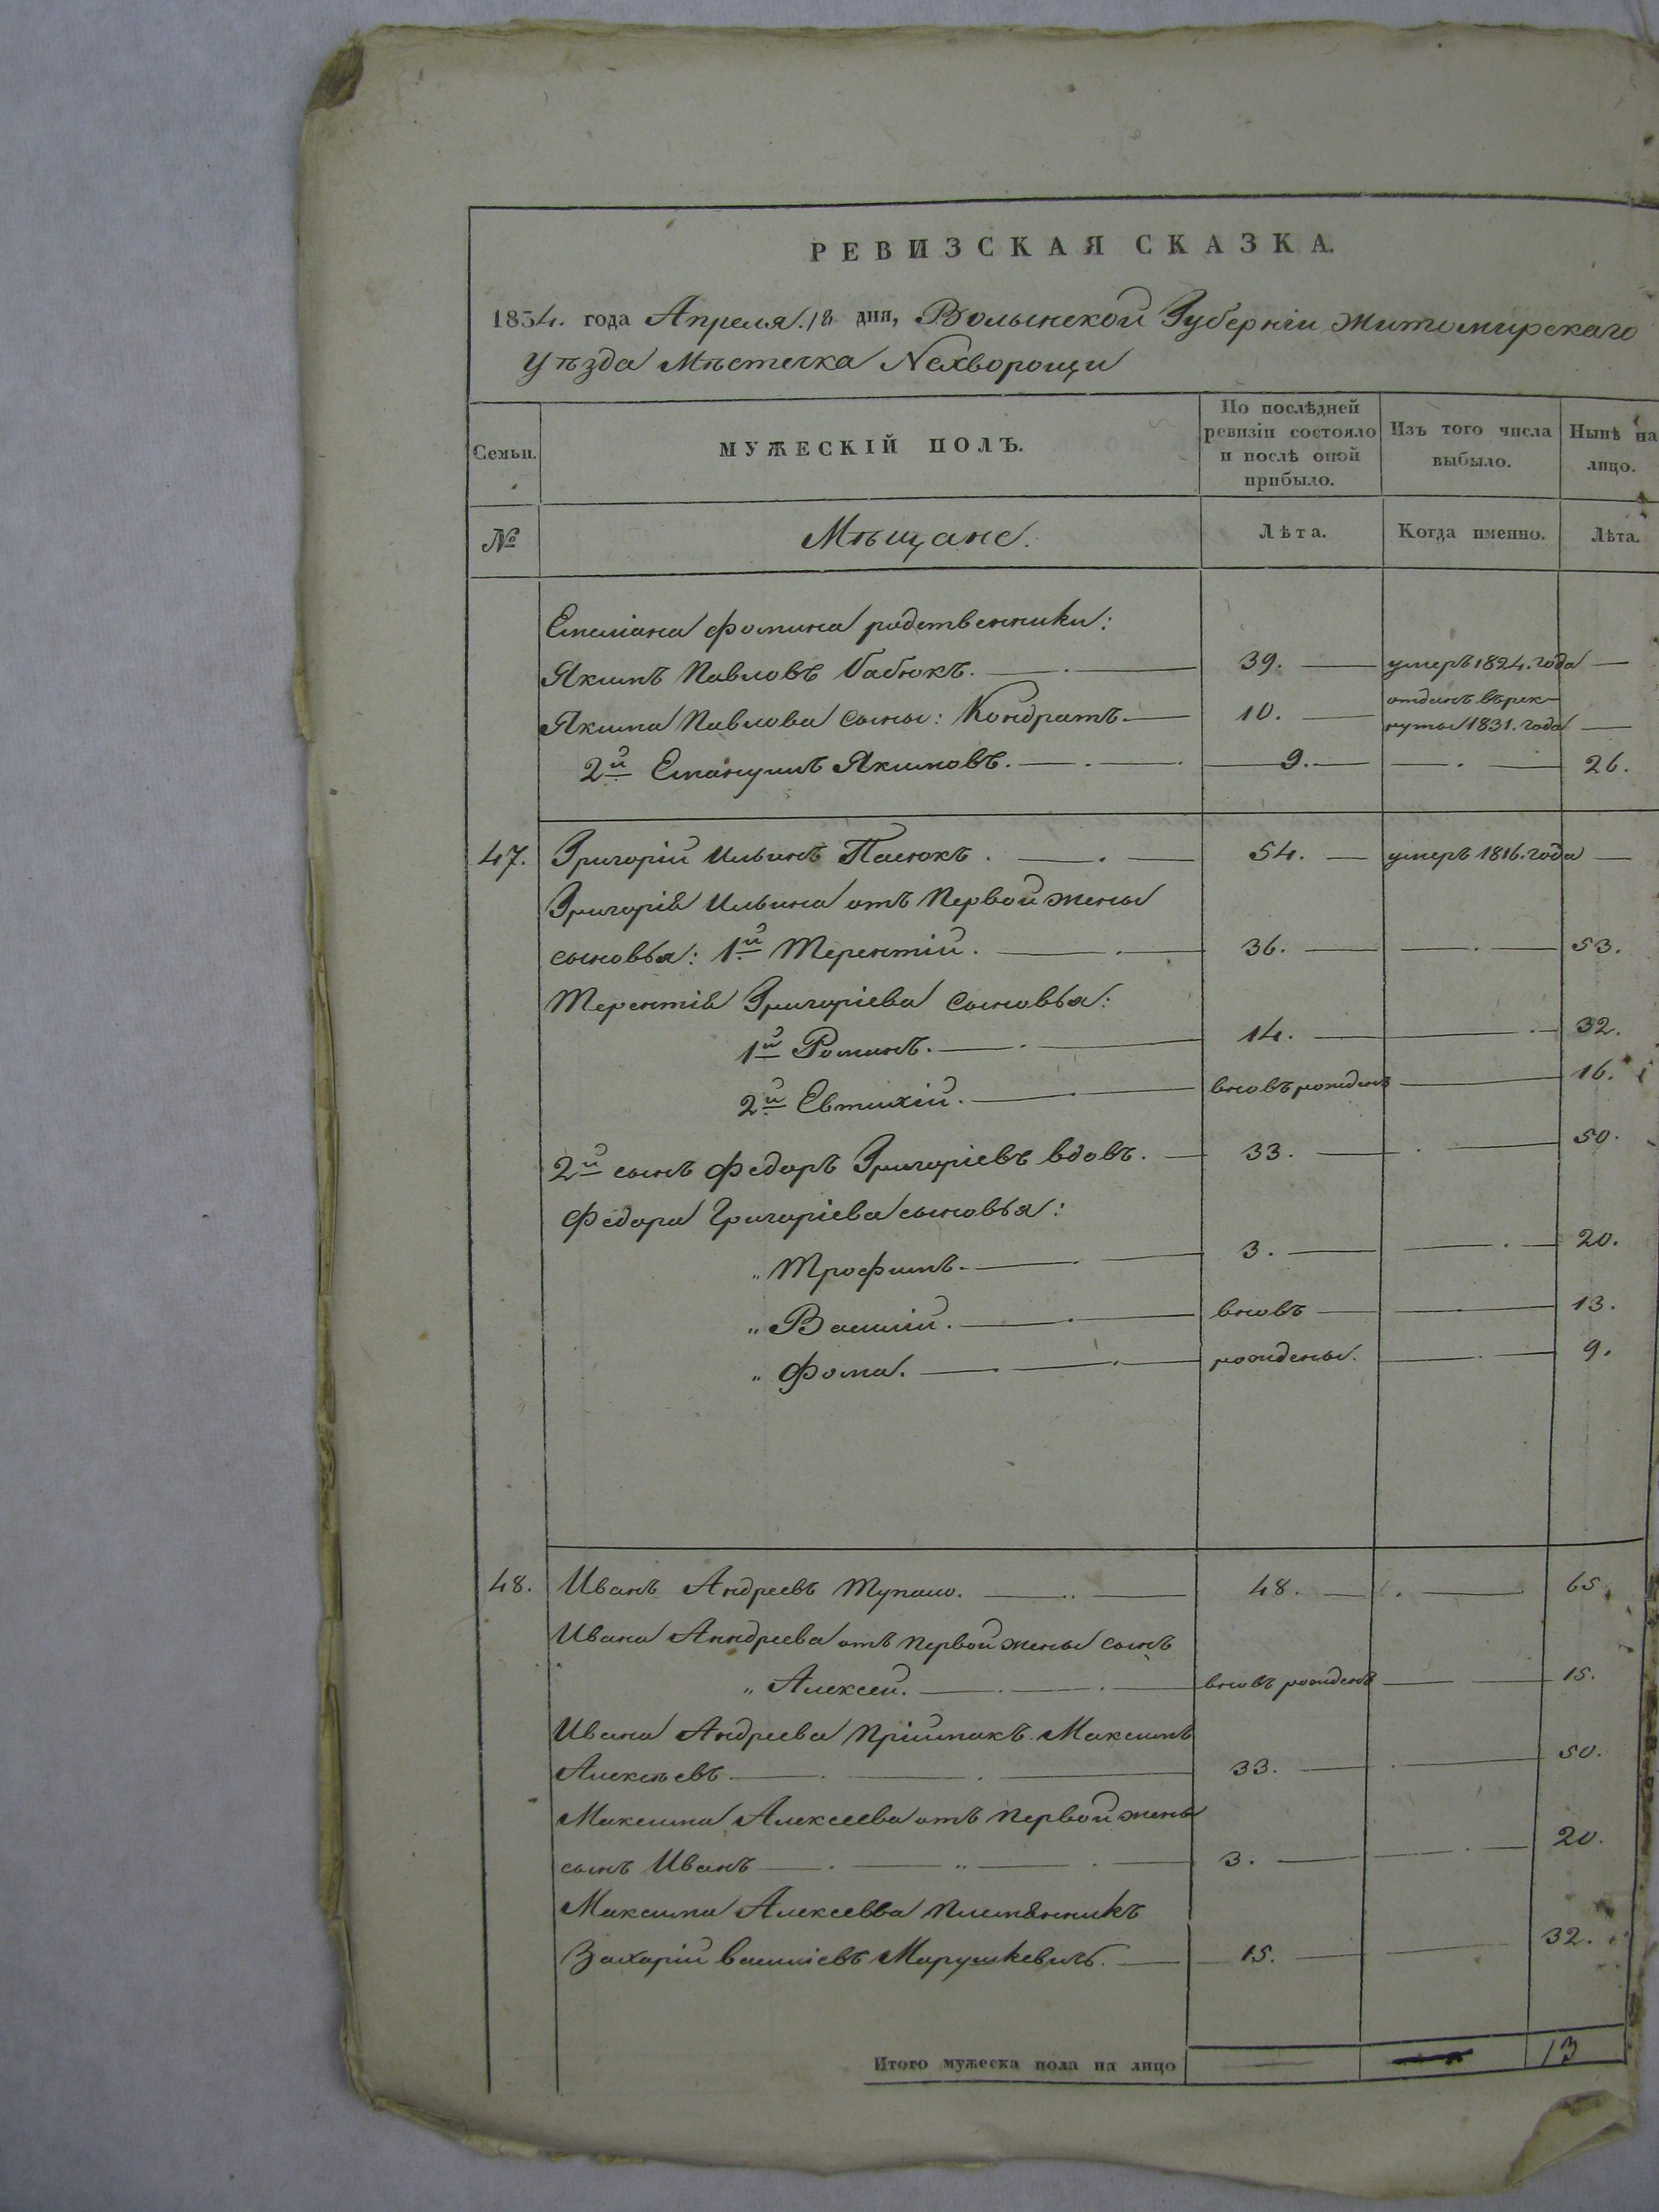 РЕВИЗСКАЯ СКАЗКА.
1834. года Апреля 18 дня, Волынской Губернiи Житомирскаго
уѣзда Мѣстечка Нехворощи
Семьи.
МУЖЕСКІЙ ПОЛЪ.
По послѣдней ревизіи состояло и послѣ оной прибыло.
Изъ того числа выбыло.
Нынѣ на лицо.
№
Мѣщане.
Лѣта.
Когда именно.
Лѣта.
Емелiана Фомина родственники:
Якимъ Павловъ Бабюкъ. 39. умеръ 1824. года
Якима Павлова сыны: Кондратъ 10. отданъ въ рекруты 1831. года
2й Емануилъ Якимовъ. 9. 26.
47. Григорій Ильинъ Палюкъ. 54. умеръ 1816. года
Григорія Ильина отъ первой жены
сыновья: 1й Терентій. 36. 53.
Терентія Григоріева сыновья:
1й Романъ. 14. 32.
2й Евтихій. вновь рожденъ 16.
2й сынъ Федоръ Григоріевъ вдовъ. 33. 50.
Федора Григоріева сыновья:
„ Трофимъ. 3. 20.
„ Василій. вновь 13.
„ Фома. рождены. 9.
48. Иванъ Андреевъ Тупало. 48. 65
Ивана Анндреева отъ первой жены сынъ
„ Алексей. вновь рожденъ 15.
Ивана Андреева пріймакъ Максимъ
Алексѣевъ 33. 50.
Максима Алексеева отъ первой жены
сынъ Иванъ 3. 20.
Максима Алексеева племянникъ
Захарій Василіевъ Марушкевичъ. 15. 32.
Итого мужеска пола на лицо 13